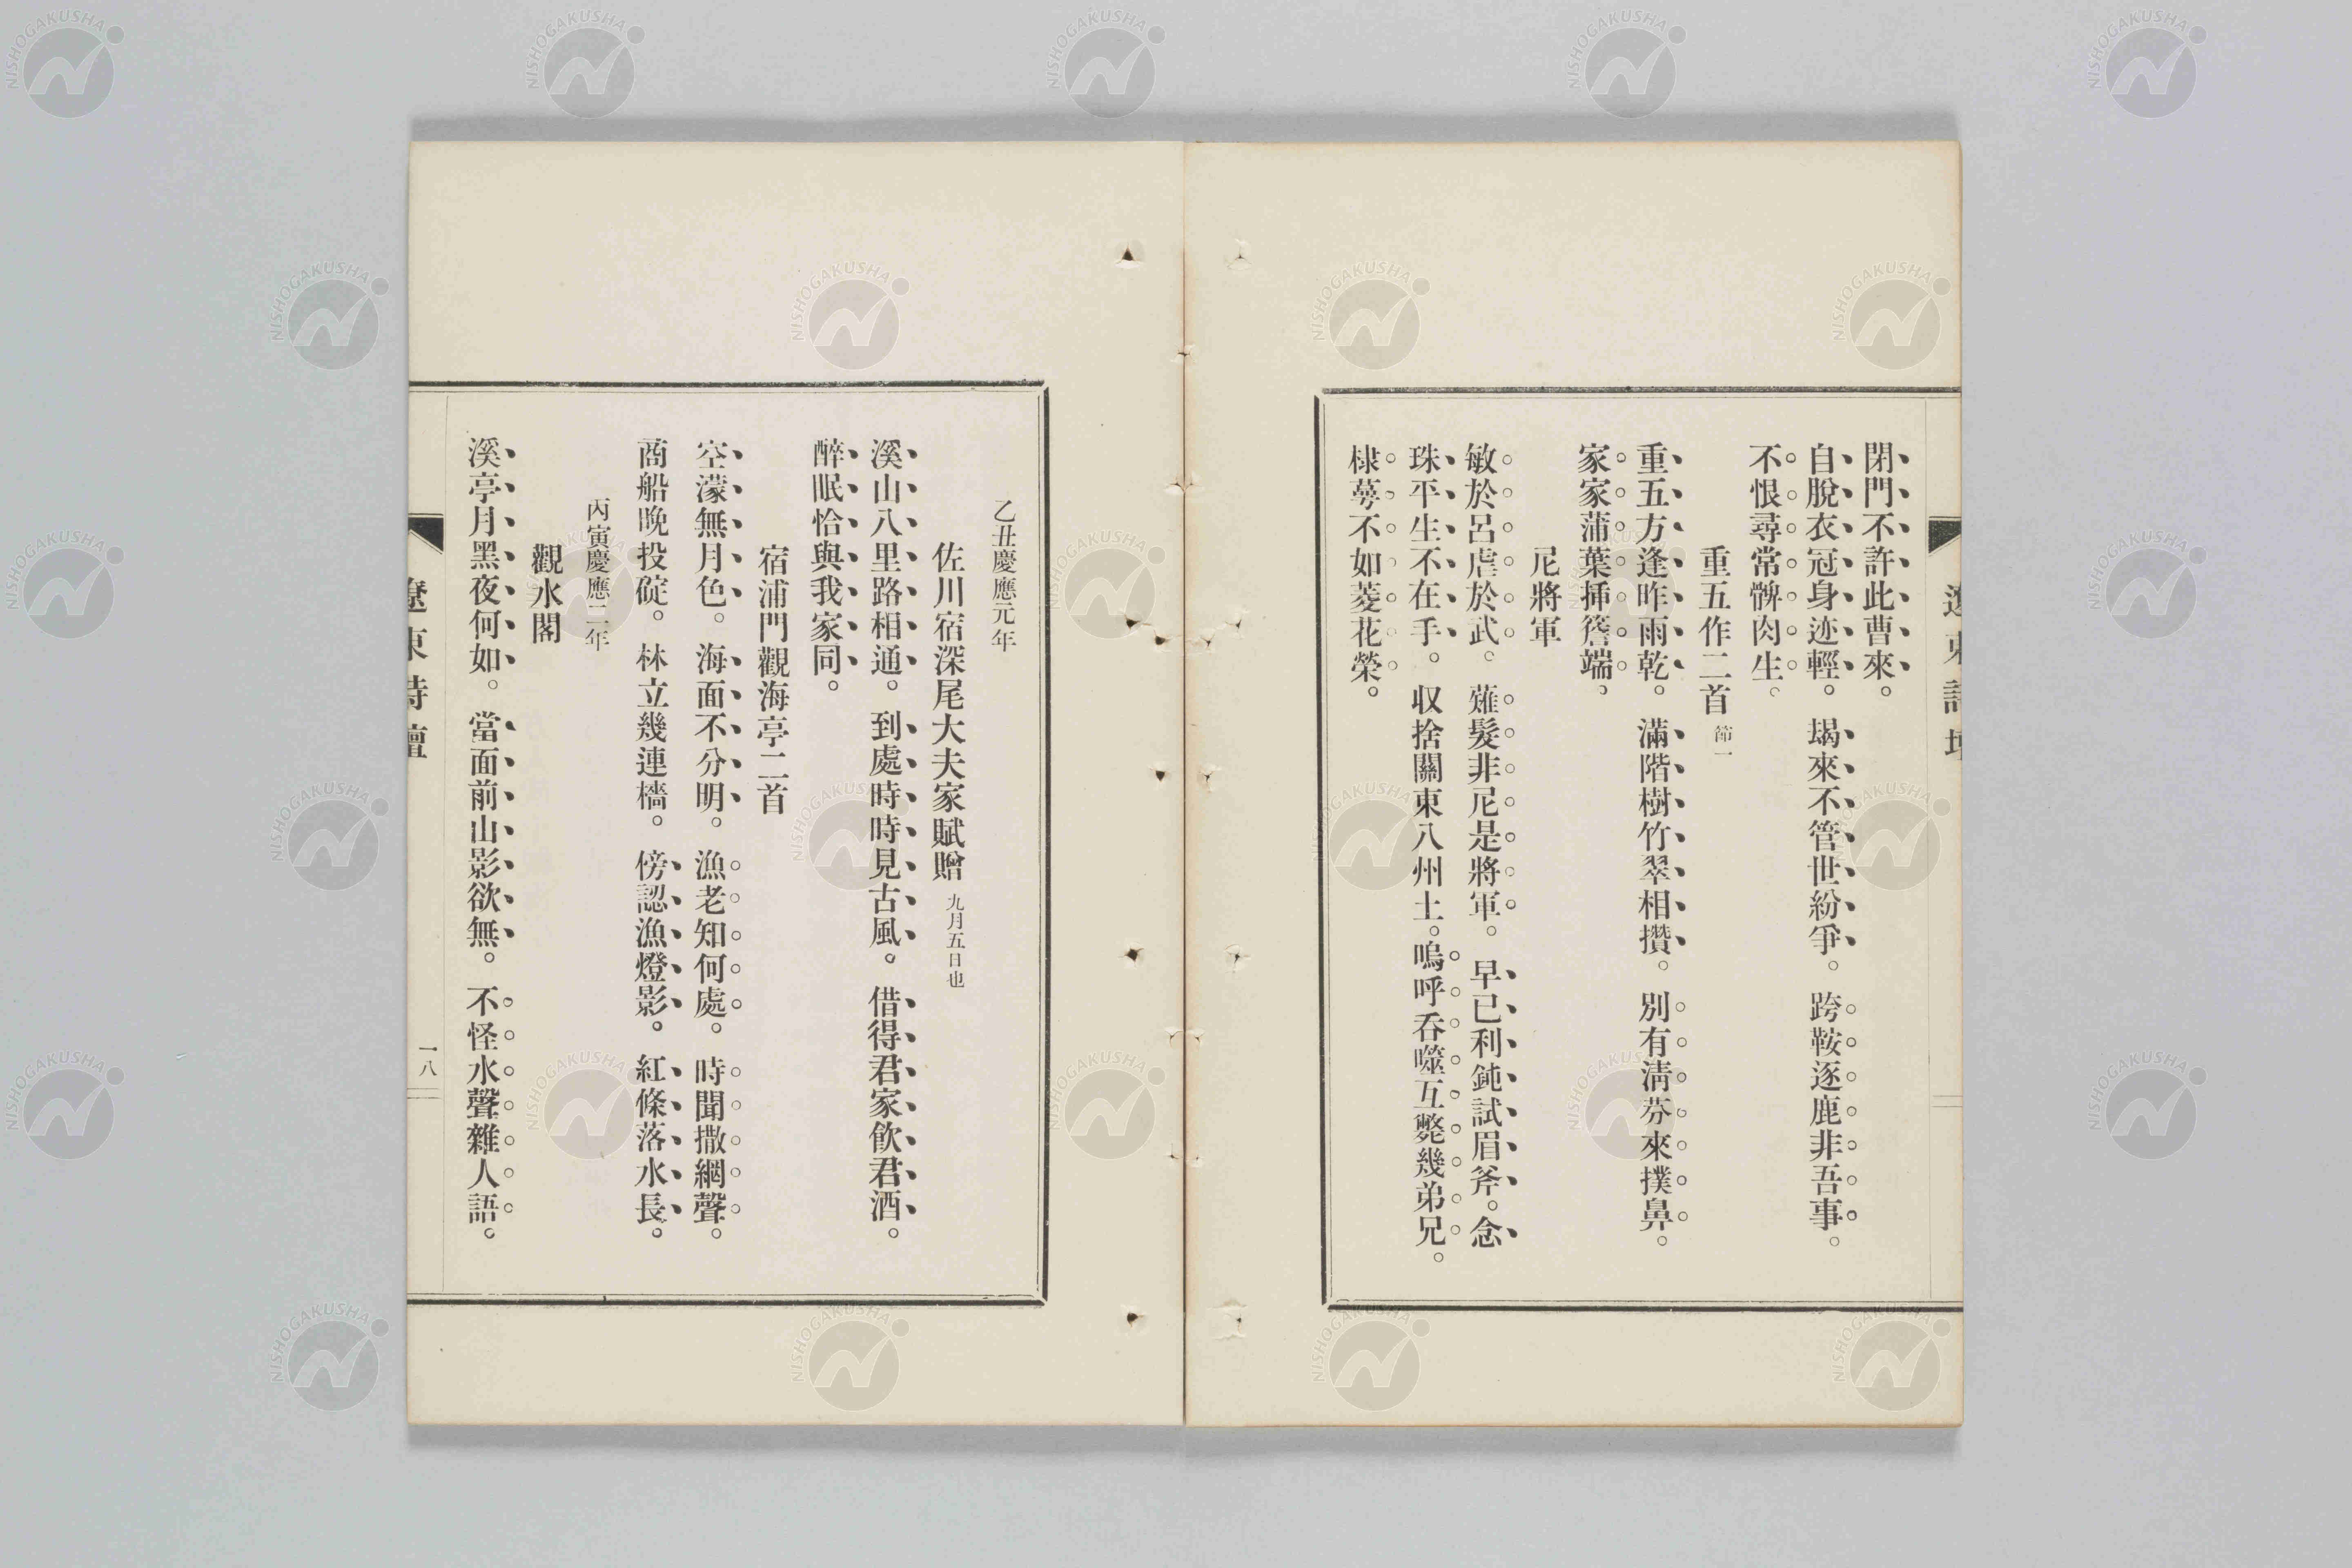 閉門不許此曹來。
自脫衣冠身迹輕。朅來不管世紛爭。跨鞍逐鹿非吾事。
不恨尋常髀肉生。
重五作二首 節一
重五方逢昨雨乾。滿階樹竹翠相攢。別有淸芬來撲鼻。
家家蒲葉揷簷端。
尼將軍
敏於呂虐於武。薙髮非尼是將軍。早已利鈍試眉斧。念
珠平生不在手。収捨關東八州土。嗚呼呑噬互斃幾弟兄。
棣萼不如菱花榮。
乙丑慶應元年
佐川宿深尾大夫家賦贈 九月五日也
溪山八里路相通。到處時時見古風。借得君家飮君酒。
醉眠恰與我家同。
宿浦門觀海亭二首
空濛無月色。海面不分明。漁老知何處。時聞撒網聲。
商船晩投碇。林立幾連檣。傍認漁燈影。紅條落水長。
丙寅慶應二年
觀水閣
溪亭月黑夜何如。當面前山影欲無。不怪水聲雜人語。
遼東詩壇
一八
NISHOGAKUSHA